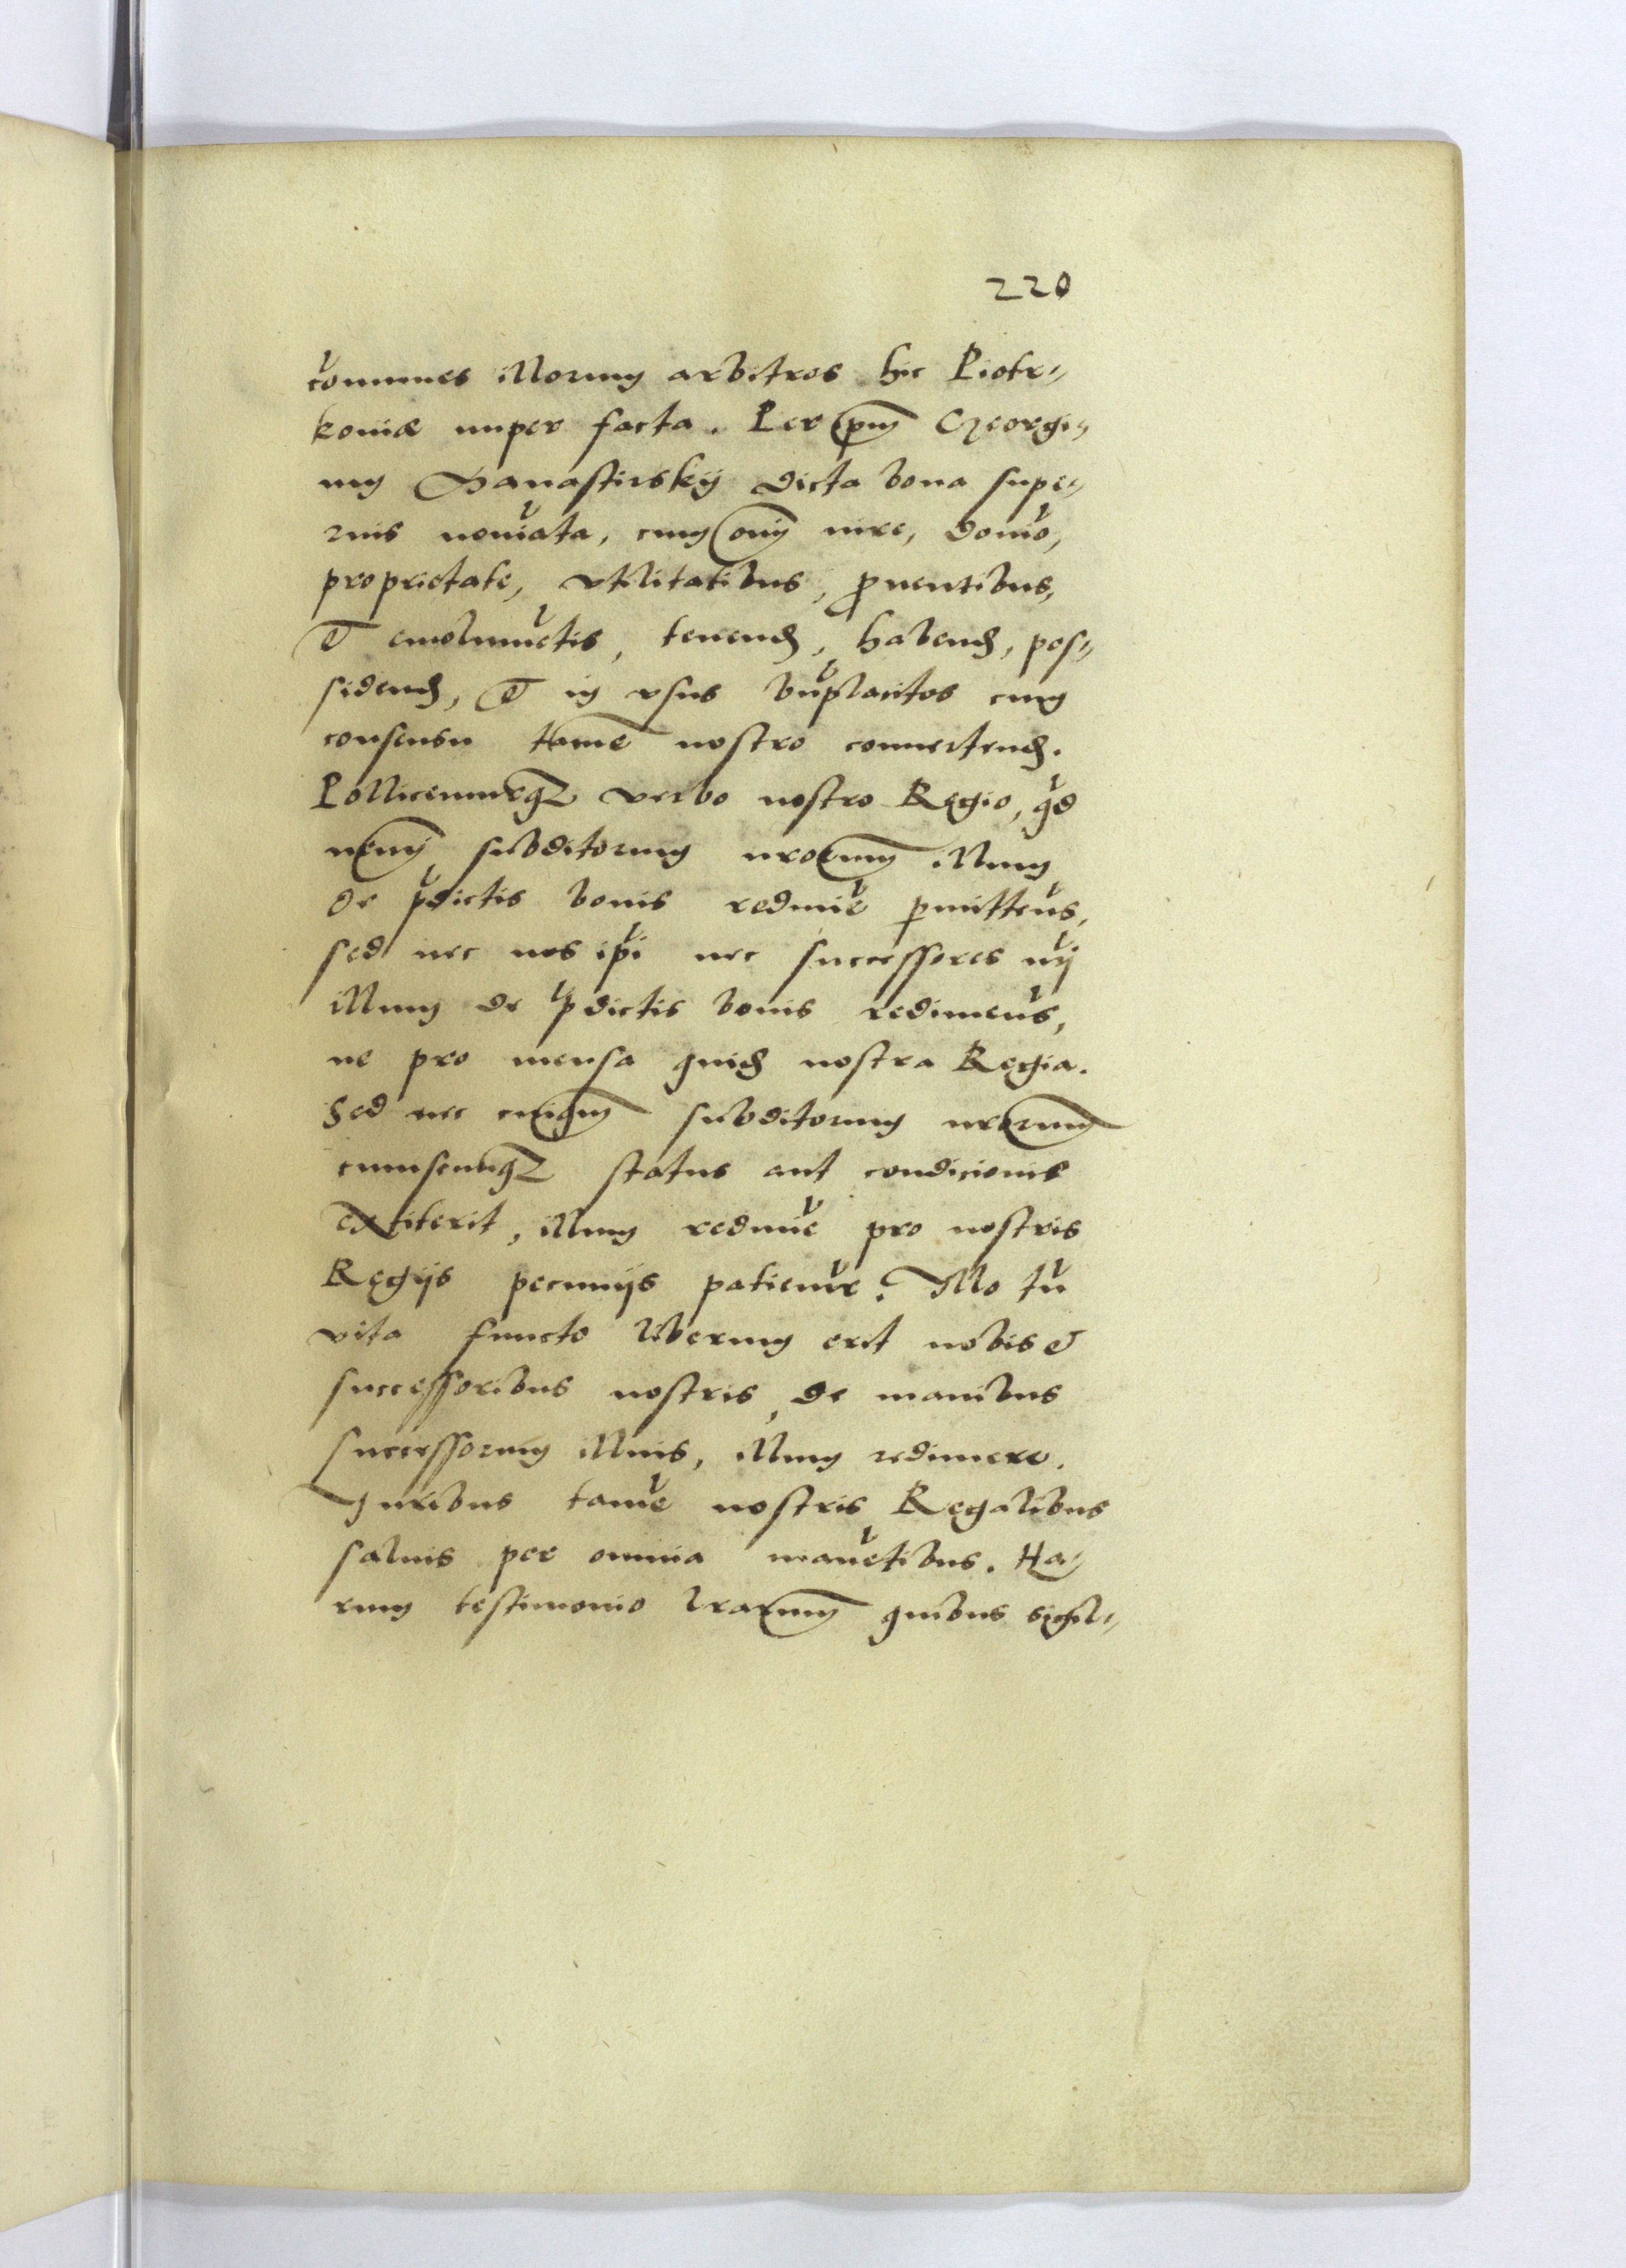 220
com̄unes illorum arbitros hic Piotr-
koviæ nuper facta. Per ip̄m Georgi-
um Banastirskij dicta bona supe-
rius noīata, cum om̄j iure, domīo,
proprietate, vtilitatibus, ꝓuentibus,
et emolumētis, tenend, habend, pos-
sidend, et in vsus bn̄placitos cum
consensu tamē nostro conuertend.
Pollicemurq3 verbo nostro Regio, qđ
nemj subditorum nr̄orum illum
de p̄dictis bonis redimē ꝑmittem̄s,
sed nec nos ip̄i nec successores n̄ij
illum de p̄dictis bonis redimem̄s,
ne pro mensa quid nostra Regia.
Sed nec cuiqm̄ subditorum nr̄orum
cuiuscunq3 status aut condicionis
extiterit, illum redimē pro nostris
Regijs pecunijs patiem̄r. Illo tn̄
vita functo liberum erit nobis et
successoribus nostris, de manibus
successorum illius, illum redimere.
Juribus tamē nostris Regalibus
saluis per omnia manētibus. Ha-
rum testimonio lr̄arum quibus sigil-